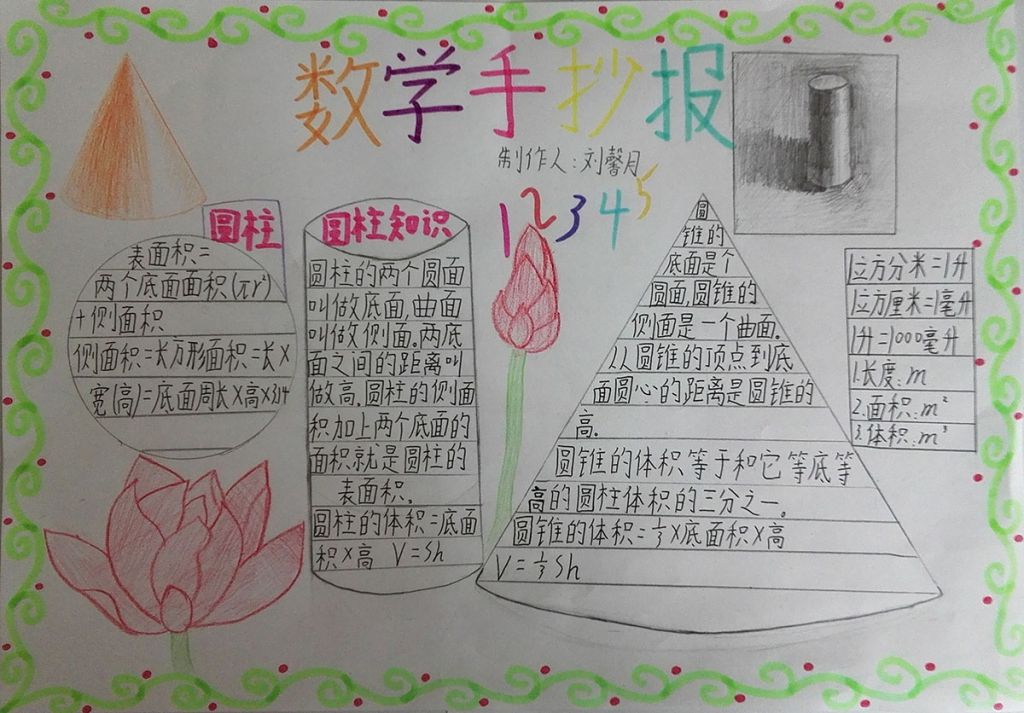 数学手抄报
制作人:刘馨月
1 2 3 4 5
圆柱
表面积=
两个底面面积(πr²)
+侧面积
侧面积=长方形面积=长×
宽(高)=底面周长×高×3.14
圆柱知识
圆柱的两个圆面
叫做底面,曲面
叫做侧面.两底
面之间的距离叫
做高.圆柱的侧面
积加上两个底面的
面积就是圆柱的
表面积。
圆柱的体积=底面
积×高 V=Sh
圆
锥的
底面是个
圆面,圆锥的
侧面是一个曲面.
从圆锥的顶点到底
面圆心的距离是圆锥的
高.
圆锥的体积等于和它等底等
高的圆柱体积的三分之一。
圆锥的体积=⅓×底面积×高
V=⅓Sh
1立方分米=1升
1立方厘米=1毫升
1升=1000毫升
1.长度:m
2.面积:m²
3.体积:m³